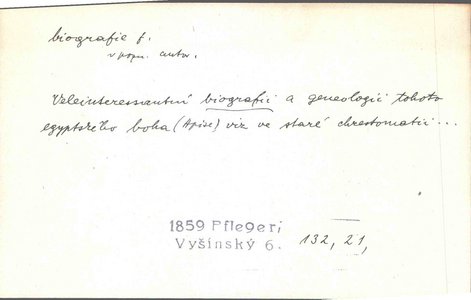 biografie f.
v pozn. autor.
Veleinteressantní biografii a geneologii tohoto
egyptského boha (Apise) viz ve staré chrestomatii ...
1859 Pfleger j
Vyšínský 6. 132, 21,